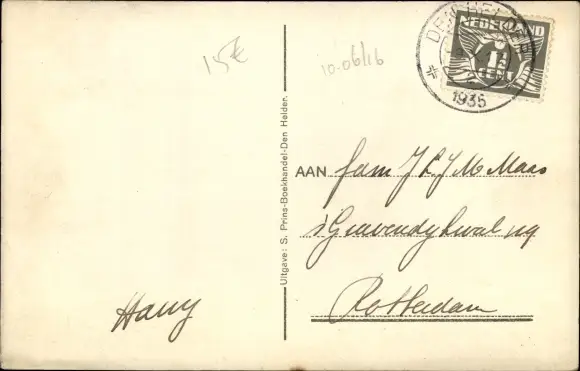 15€
10-06/16
DEN HELDER
1935
NEDERLAND
1½
CENT
Uitgave: S. Prins-Boekhandel-Den Helder.
AAN fam J. C. J. M. Maas
's Gravendijkwal 119
Rotterdam
Harry